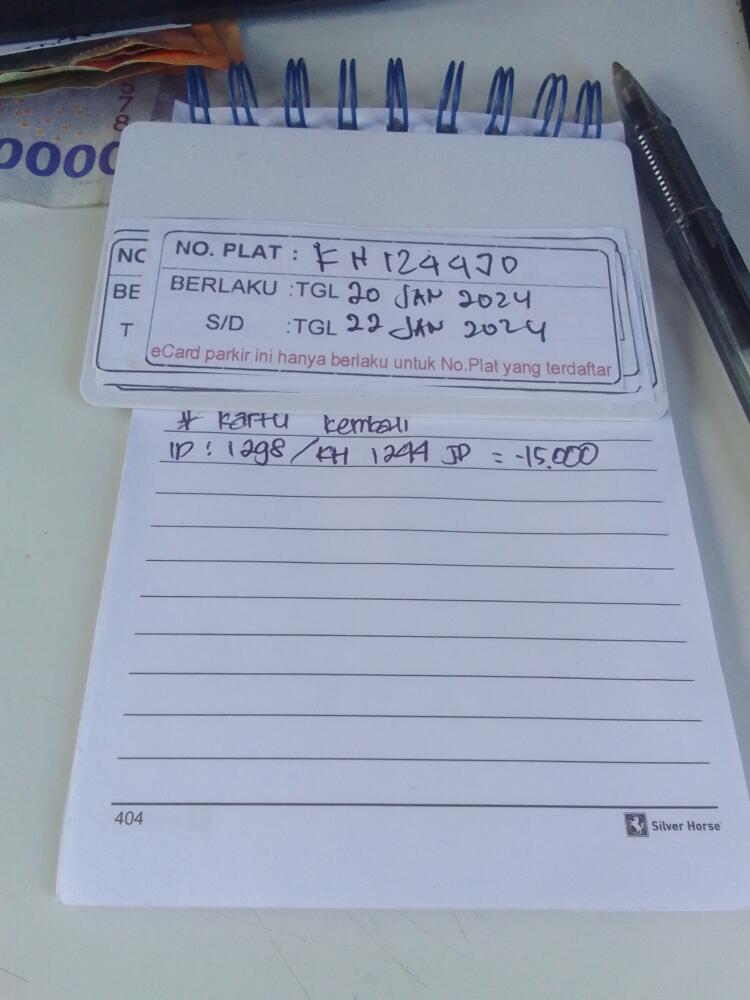 0000
678
NO. PLAT : KH 1244 JO
NO
BERLAKU :TGL 20 JAN 2024
BE
S/D :TGL 22 JAN 2024
T
eCard parkir ini hanya berlaku untuk No.Plat yang terdaftar
* Kartu kembali
ID : 1298 / KH 1244 JP = -15.000
404
Silver Horse